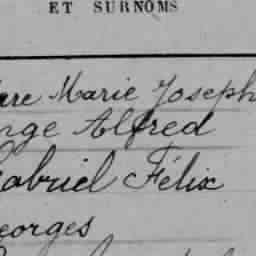 ET SURNOMS
Marie Joseph
Alfred
Gabriel Félix
Georges